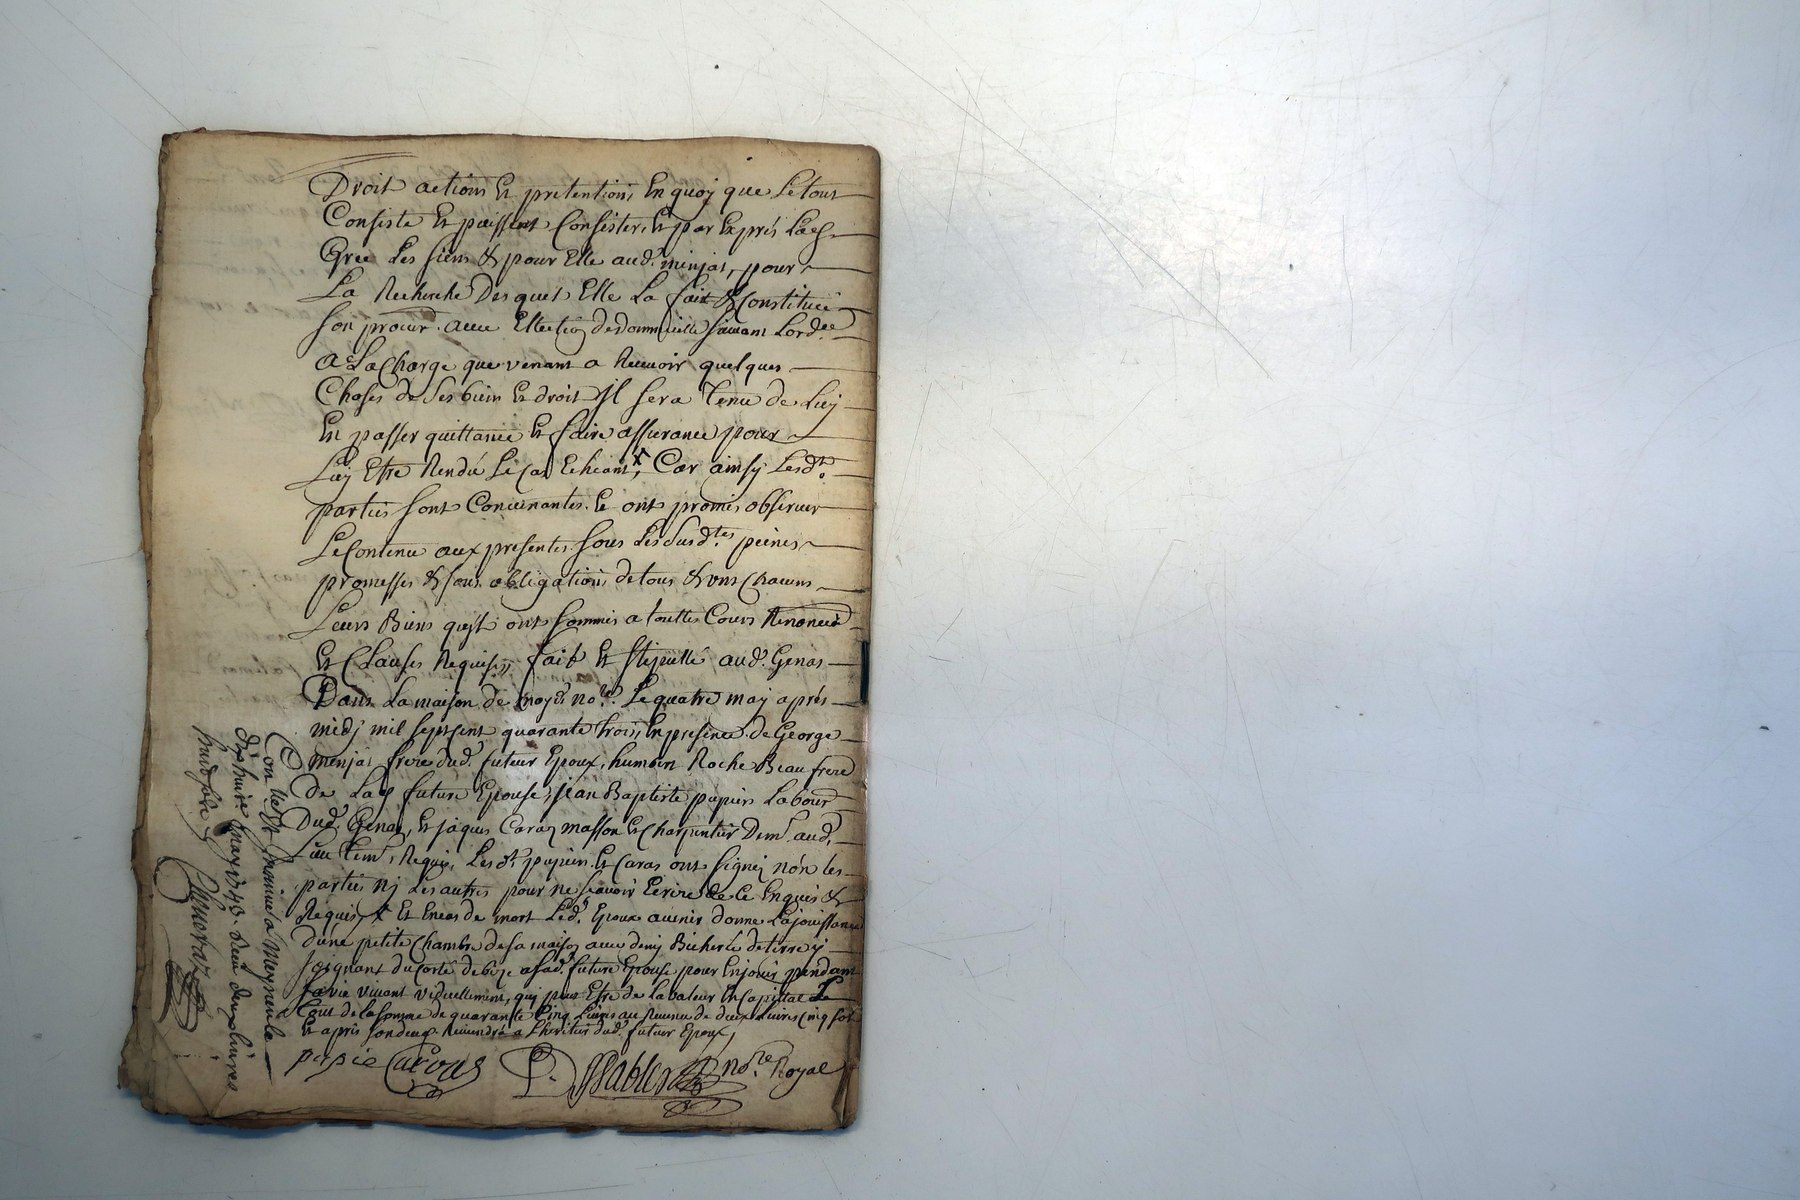 Droit actions Et pretentions En quoy que Le tout
Consiste Et puissent Consister, Et par Exprés Lad.
Gree Les siens & pour Elle aud. minjas, pour
La Recherche Desquels Elle La fait & Constitué
Son procur. avec Ellection de dommicille suivant Lord.ce
a La Charge que venant a Recevoir quelques
Choses de Ses biens Et droit Il sera Tenu de Luy
En passer quittance Et faire assurance pour
Luy Estre Rendu Le Cas Echeant, x Car ainsy Lesd.
parties sont Convenantes. Et ont promis observer
Le Contenu aux presentes. Sous Les Susd.tes peines
promesses & sous obligations de tous & uns Chacuns
Leurs Biens qu'ils ont sommis a touttes Cours Renoncé
Et Clauses Requises, fait Et stipullé aud. Genas
Dans La maison de moyd. no.re Le quatre may aprés
midj mil sept cent quarante trois, En presence de George
minjas frere dud. futeur Epoux, humbert Roche Beau frere
de Lad. future Epouse, jean Baptiste pupier Labour
Dud. Genas, Et jaques Caras masson Et Charpentier Dem.t aud.
Lieu tem. Requis, Lesd. pupier Et Caras ont signé non les
parties nj Les autres pour ne scavoir Ecrire de ce Enquis &
Requis, x Et En cas de mort Led. Epoux avenir donne La jouissance
d'une petite Chambre de sa maison avec demy Bicherée de terre y
joignant du Corté de bize a sad. future Epouse pour En jouir pendant
sa vie vivant viduellement, qui peut Estre de la valeur En Capittal Le
tout de la somme de quarante Cinq Livres au Revenu de deux Livres Cinq sols
Et aprés son deces Reviendra a L'heritier dud. futeur Epoux,
pupie Caras P. Sablier no.re Royal
Con.llé Et Insinué a Meyzieu le
dix huit may 1743. Receu deux livres